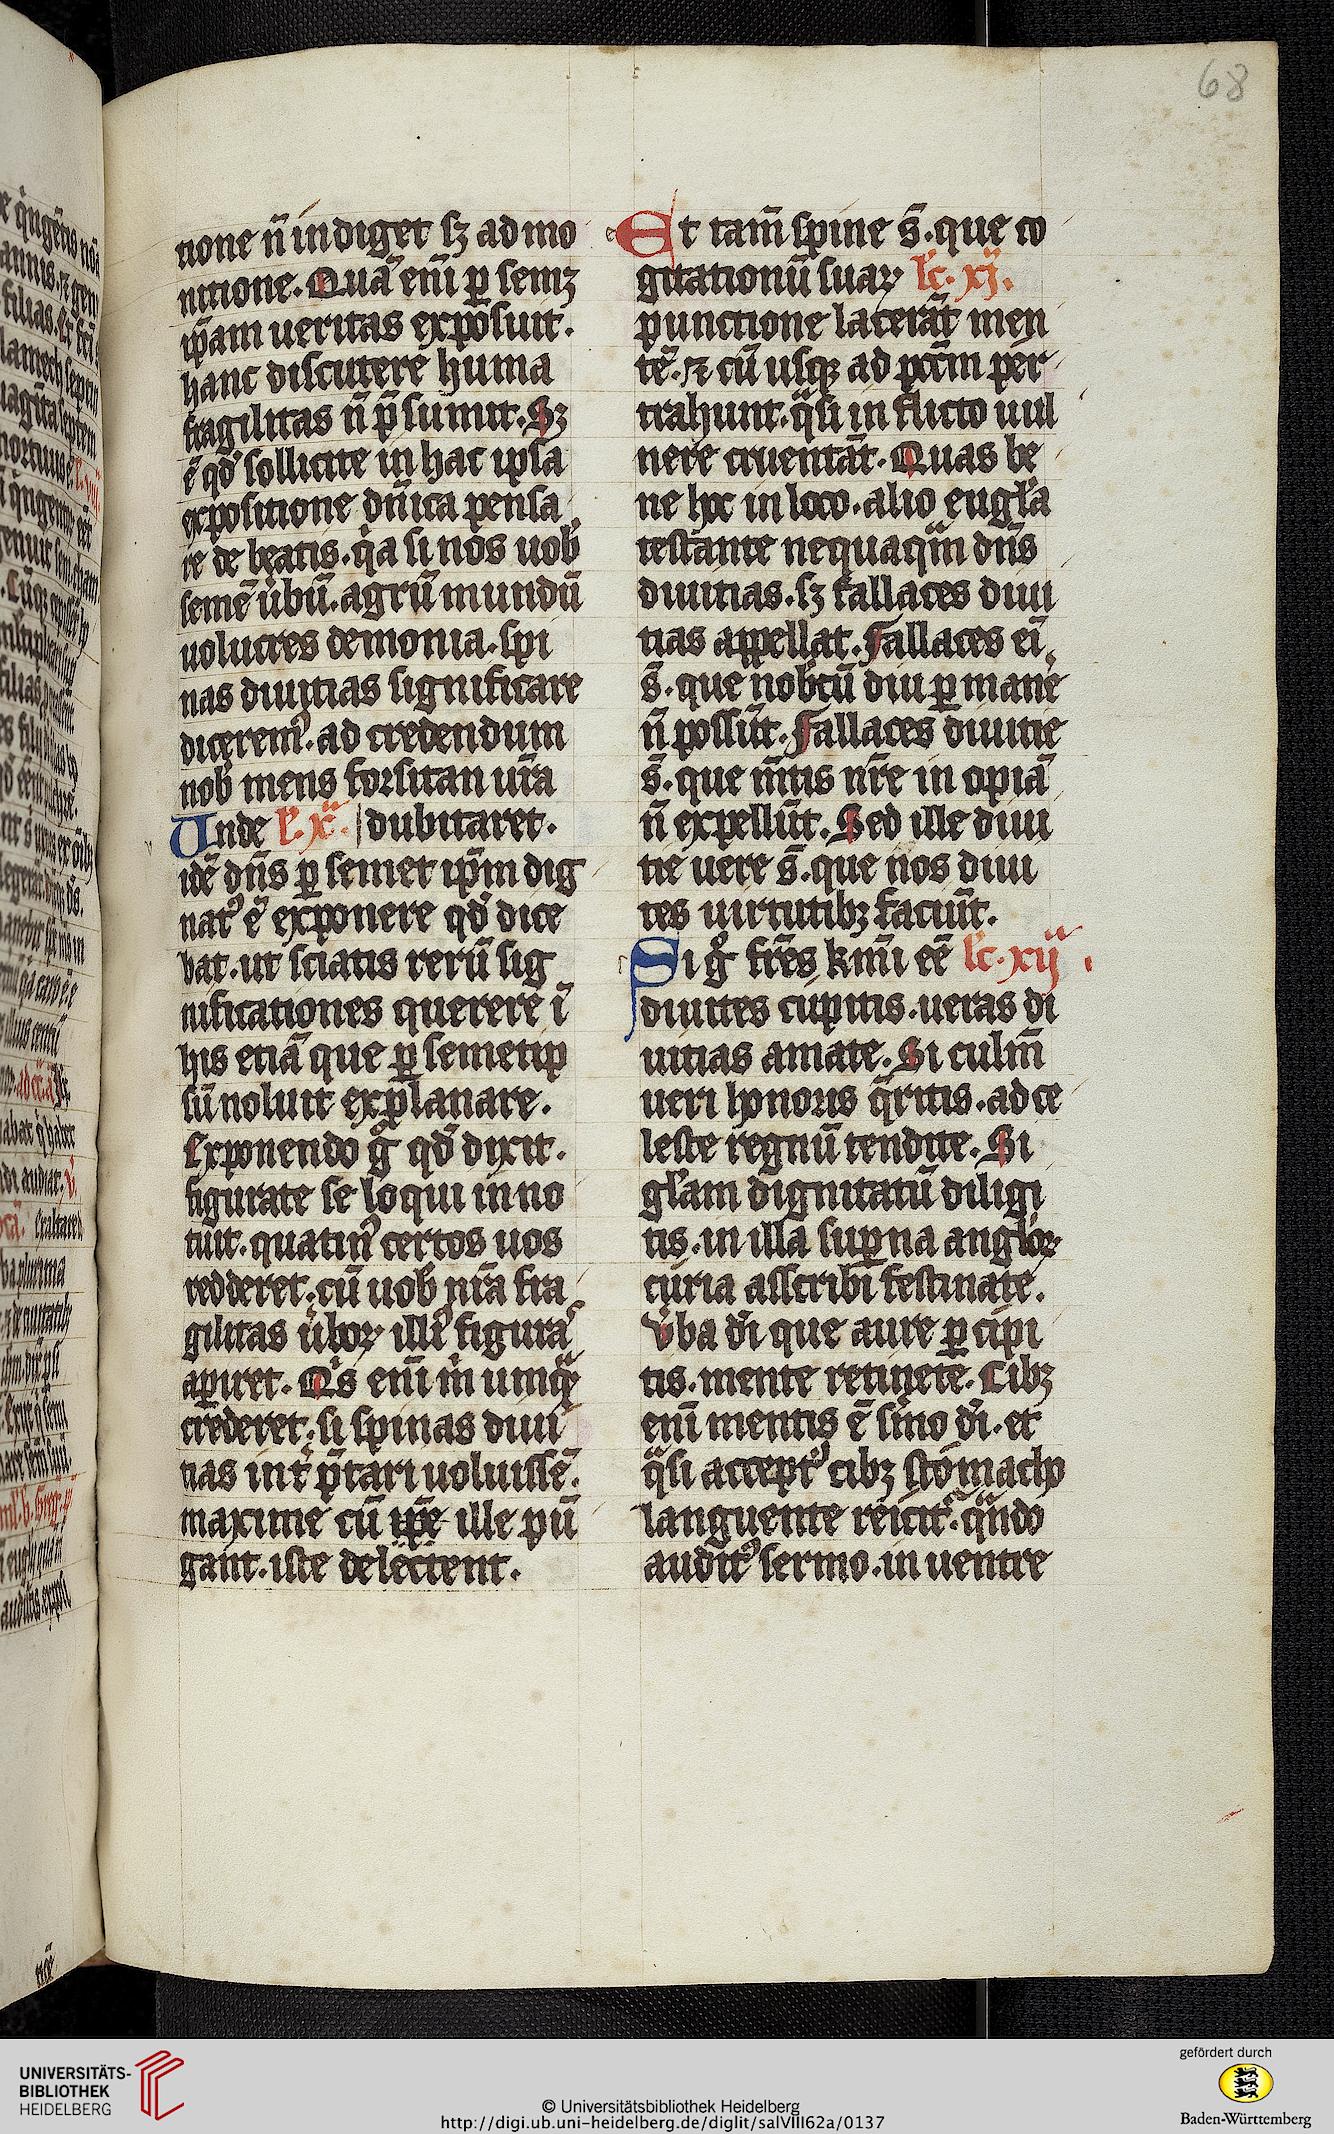 68
tione n̄ indiget sꝫ ad mo
nitione. Quā em̄ ꝑ semꝫ
ip̄am ueritas exposuit.
hanc discutere huma
fragilitas n̄ p̄sumit. Sꝫ
ē qđ sollicite in hac ipsa
expositione dn̄ica pensa
re de beatis. qͥa si nos uob̄
semē ūbū. agrū mundū
uolucres demonia. spi
nas diuitias significare
dicerem᷒. ad credendum
nob̄ mens forsitan ur̄a
Unde l͛. x͛. dubitaret.
idē dn̄s ꝑ semet ip̄m dig
nat᷒ ē exponere qđ dice
bat. ut sciatis rerū sig
nificationes querere ī
his etiā que ꝑ semetip
sū noluit explanare.
Exponendo gͦ qđ dixit.
figurate se loqui inno
tuit. quatin᷒ certos uos
redderet. cū uob̄ nr̄a fra
gilitas ūboꝝ illi᷒ figurā
aperiret. Qͥs em̄ m̄ umqᷓ
crederet. si spinas diui
tias int̄ p̄tari uoluissē.
maxime cū ip̄e ille pū
gant. iste delectent.
Et tam̄ spine s̄. que co
gitationū suaꝝ lc̄. xj.
punctione lacerāt men
tē. ⁊ cū usqꝫ ad pctm̄ per
trahunt. qᷓsi in flicto uul
nere cruentāt. Quas be
ne hoc in loco. alio eugl̄a
testante nequaqᷓm dn̄s
diuitias. sꝫ fallaces diui
tias appellat. Fallaces ei̅
s̄. que nobcū diu ꝑmane
n̄ possūt. Fallaces diuitie
s̄. que m̄tis nr̄e in opiā
n̄ expellūt. Sed ille diui
tie uere s̄. que nos diui
tes uirtutibꝫ faciūt.
Si gͦ fr̄es km̄i eē lc̄. xij.
diuites cupitis. ueras di
uitias amate. Si culm̄
ueri honoris q̄ritis. ad ce
leste regnū tendite. Si
gl̄am dignitatū diligi
tis. in illa sup̄na angl̄oꝝ
curia asscribi festinate.
Ūba di̅ que aure ꝑcipi
tis. mente retinete. Cibꝫ
em̄ mentis ē s̄mo di̅. et
qᷓsi accept᷒ cibꝫ stomacho
languente reicit᷒. qᷓndo
audit᷒ sermo. in uentre
UNIVERSITÄTS-
BIBLIOTHEK
HEIDELBERG
© Universitätsbibliothek Heidelberg
http://digi.ub.uni-heidelberg.de/diglit/salVIII62a/0137
gefördert durch
Baden-Württemberg